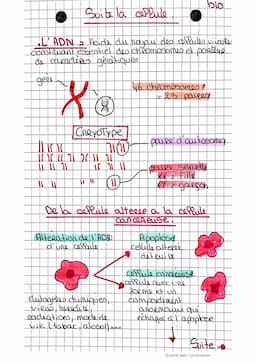 bio
Suite la cellule
. L'ADN = Acide du noyau des cellules vivantes
constituant essentiel des chromosomes et porteur
de caractères génétiques
gène
46 chromosomes
= 23 paires
CARYOTYPE
paire d'autosomes
paire sexuelle
XX = fille
XY = garçon
De la cellule altérée à la cellule
cancéreuse.
Altération de l'ADN
d'une cellule
Apoptose
cellule altérée
détruite
cellule cancéreuse
cellule avec une
forme et un
comportement
anormaux qui
échappe à l'apoptose
Mutagènes chimiques,
virus, hérédité,
radiations, mode de
vie (tabac, alcool)...
Suite
Scanné avec CamScanner